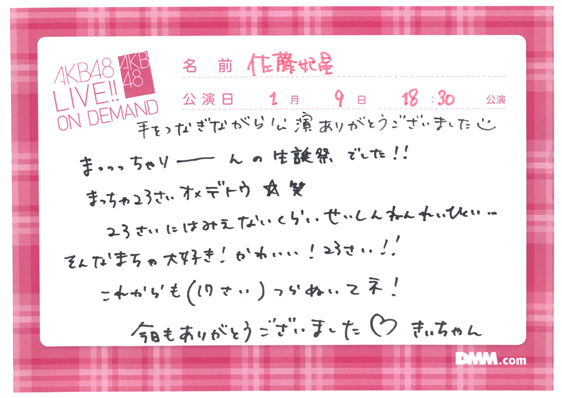 AKB48
LIVE!!
ON DEMAND
AKB
48
名前 佐藤妃星
公演日 1月 9日 18:30 公演
手をつなぎながら公演ありがとうございました
まっっっちゃりーーんの生誕祭でした!!
まっちゃ23さいオメデトウ☆笑
23さいにはみえないくらい、せいしんねんれいひくい…
そんなまちゃ大好き!かわいい!23さい!!
これからも(17さい)つらぬいてネ!
今日もありがとうございました♡ きぃちゃん
DMM.com